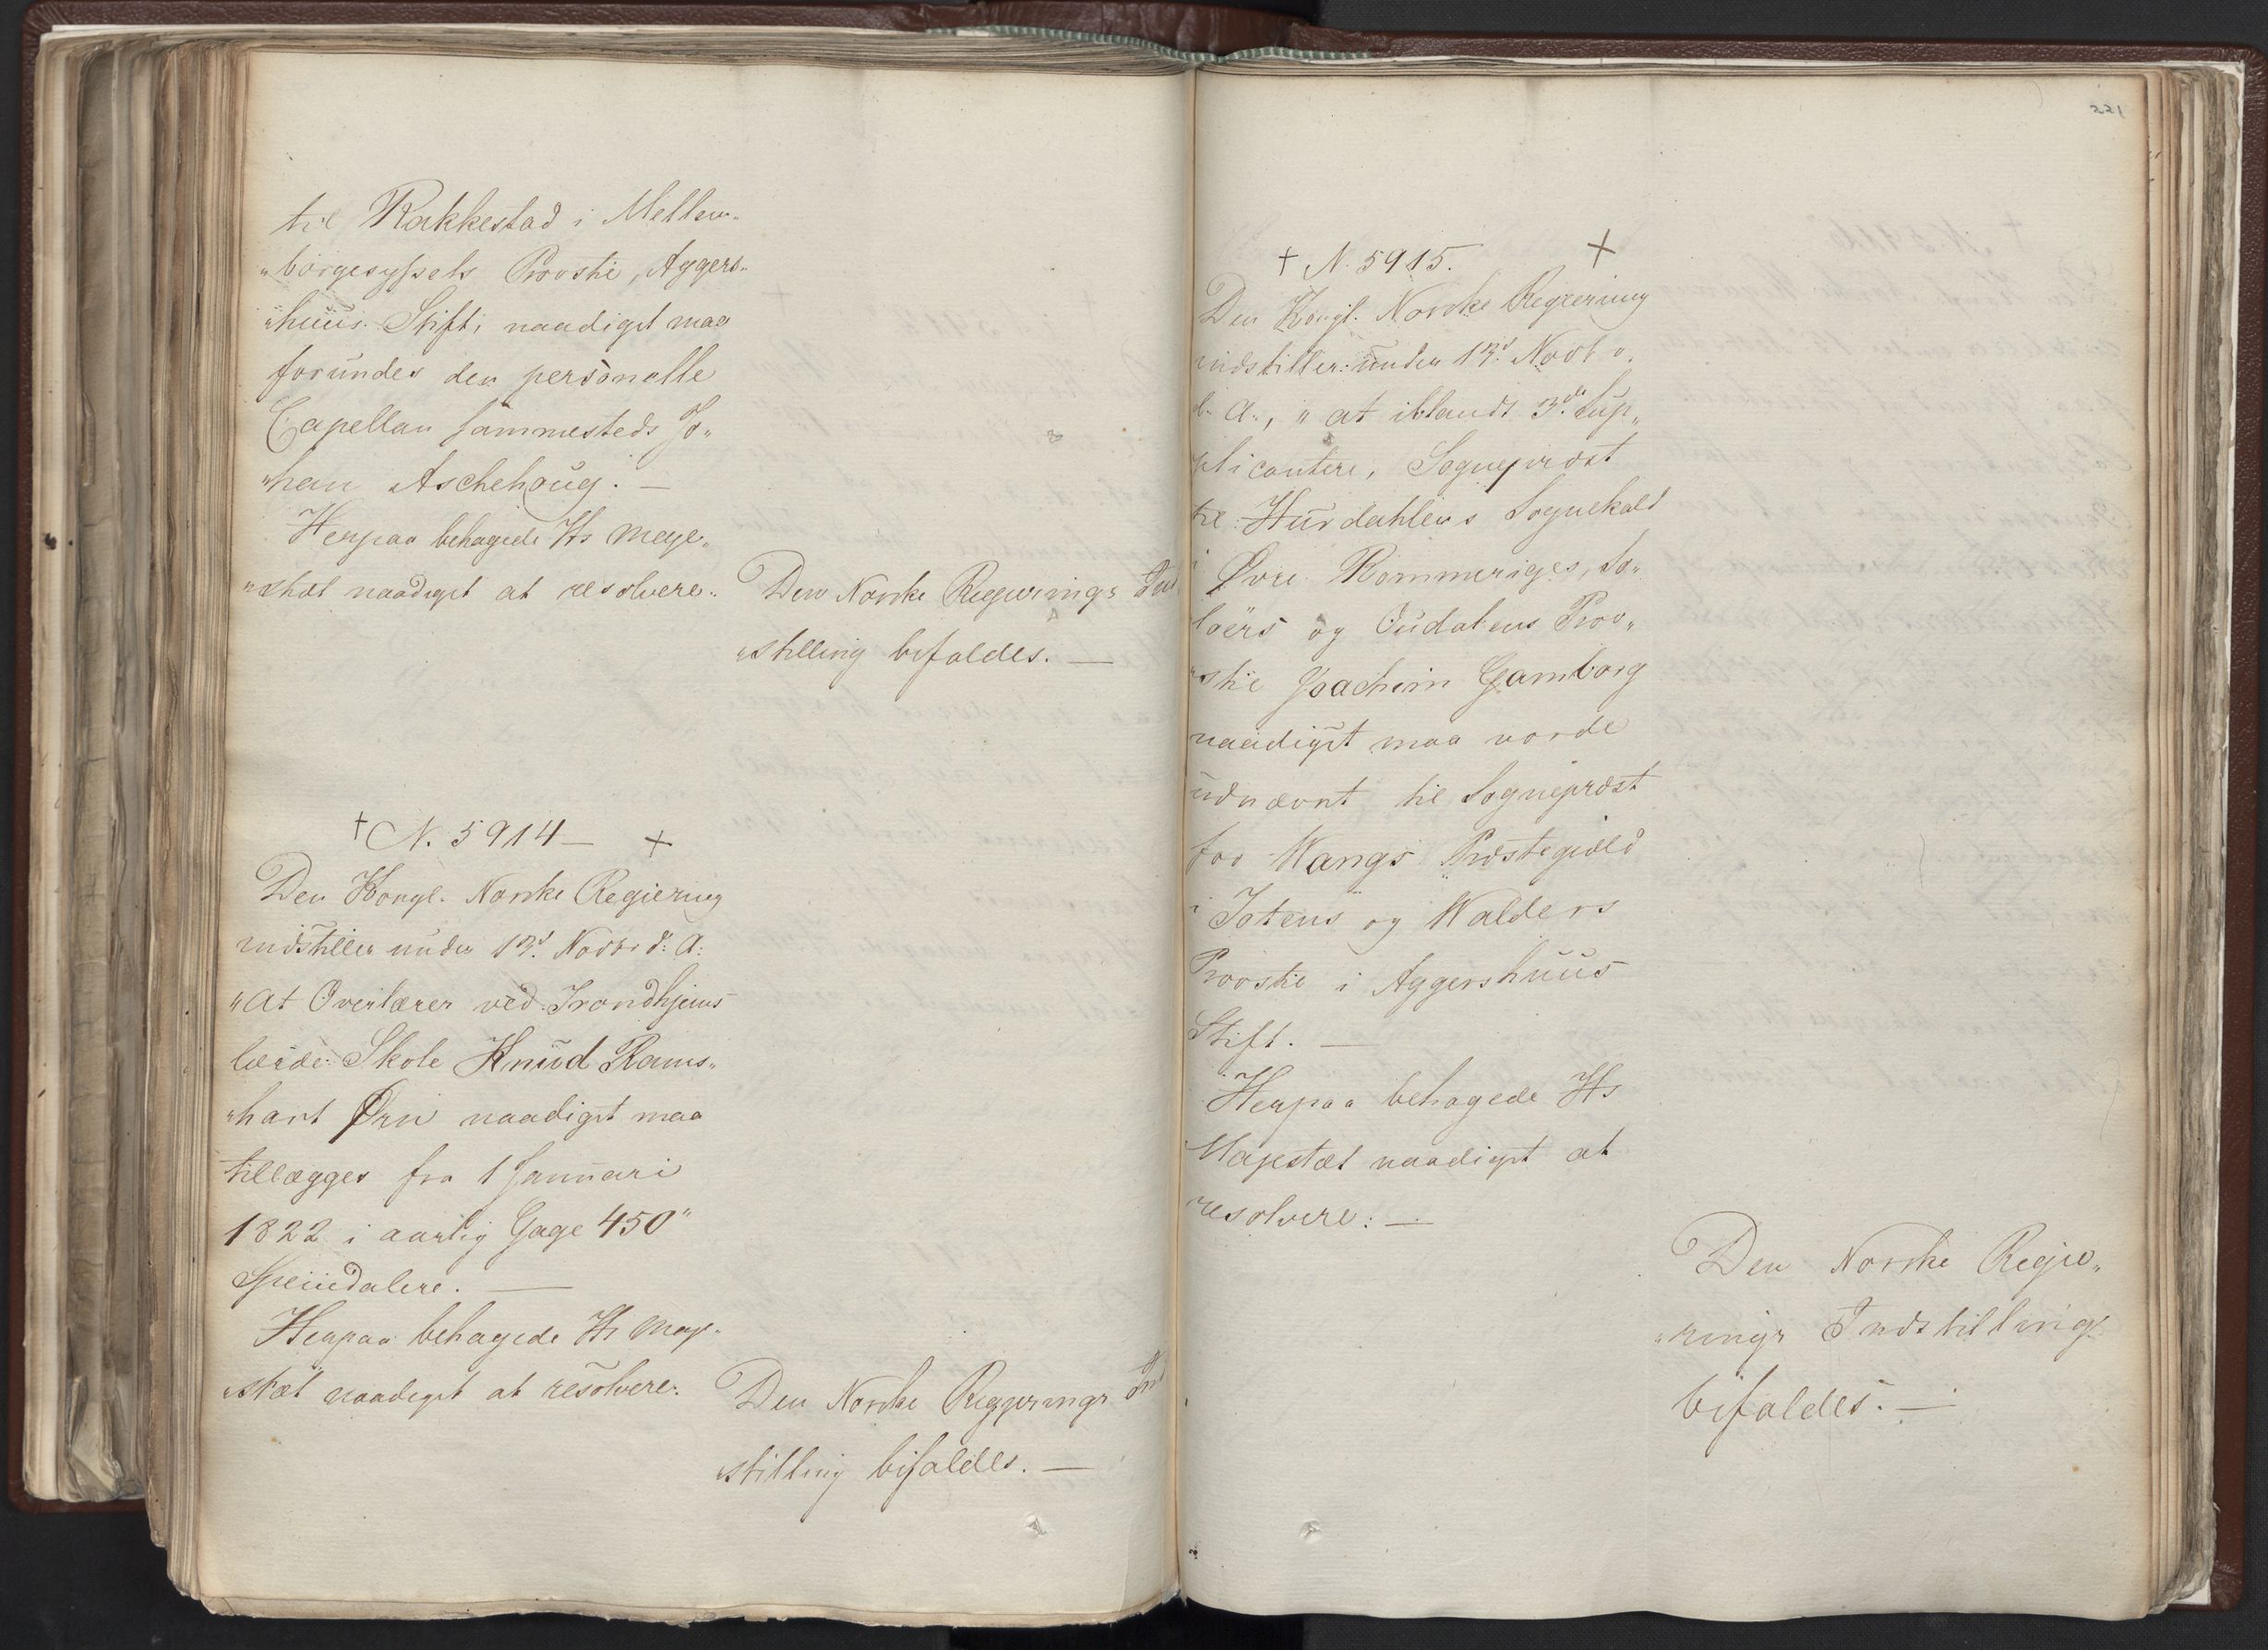 til Rakkestad i Mellem„
„borgesyssels Provstie, Aggers„
„huus Stift, naadigst maa
forundes den personelle
Capellan sammesteds Jo„
„han Aschehoug. —
Herpaa behagede Hs Maje„
„stæt naadigst at resolvere:
Den Norske Regjerings Ind„
„stilling bifaldes. —
† N. 5914 — +
Den Kongl. Norske Regiering
indstiller under 13d Novbr d: A:
"At Overlærer ved Trondhjems
lærde Skole Knud Rams„
„hart Ørn naadigst maa
tillægges fra 1 Januari
1822 i aarlig Gage 450"
Speciedalere. —
Herpaa behagede Hs Maje„
„stæt naadigst at resolvere:
Den Norske Regjerings Ind
„stilling bifaldes. —
221
† N. 5915. +
Den Kongl. Norske Regiering
indstiller under 13d Novbr
d. A., "at iblandt 3de Sup„
plicantere, Sognepræst
til Hurdahlens Sognekald
i Øvre Rommeriges, So„
löers og Oudalens Prov„
„stie Joachim Gamborg
naadigst maa vorde
udnævnt til Sognepræst
for Wangs Præstegield
i Totens og Walders
Provstie i Aggershuus
Stift. —
Herpaa behagede Hs
Majestæt naadigst at
resolvere: —
Den Norske Regje„
„rings Indstilling
bifaldes. —